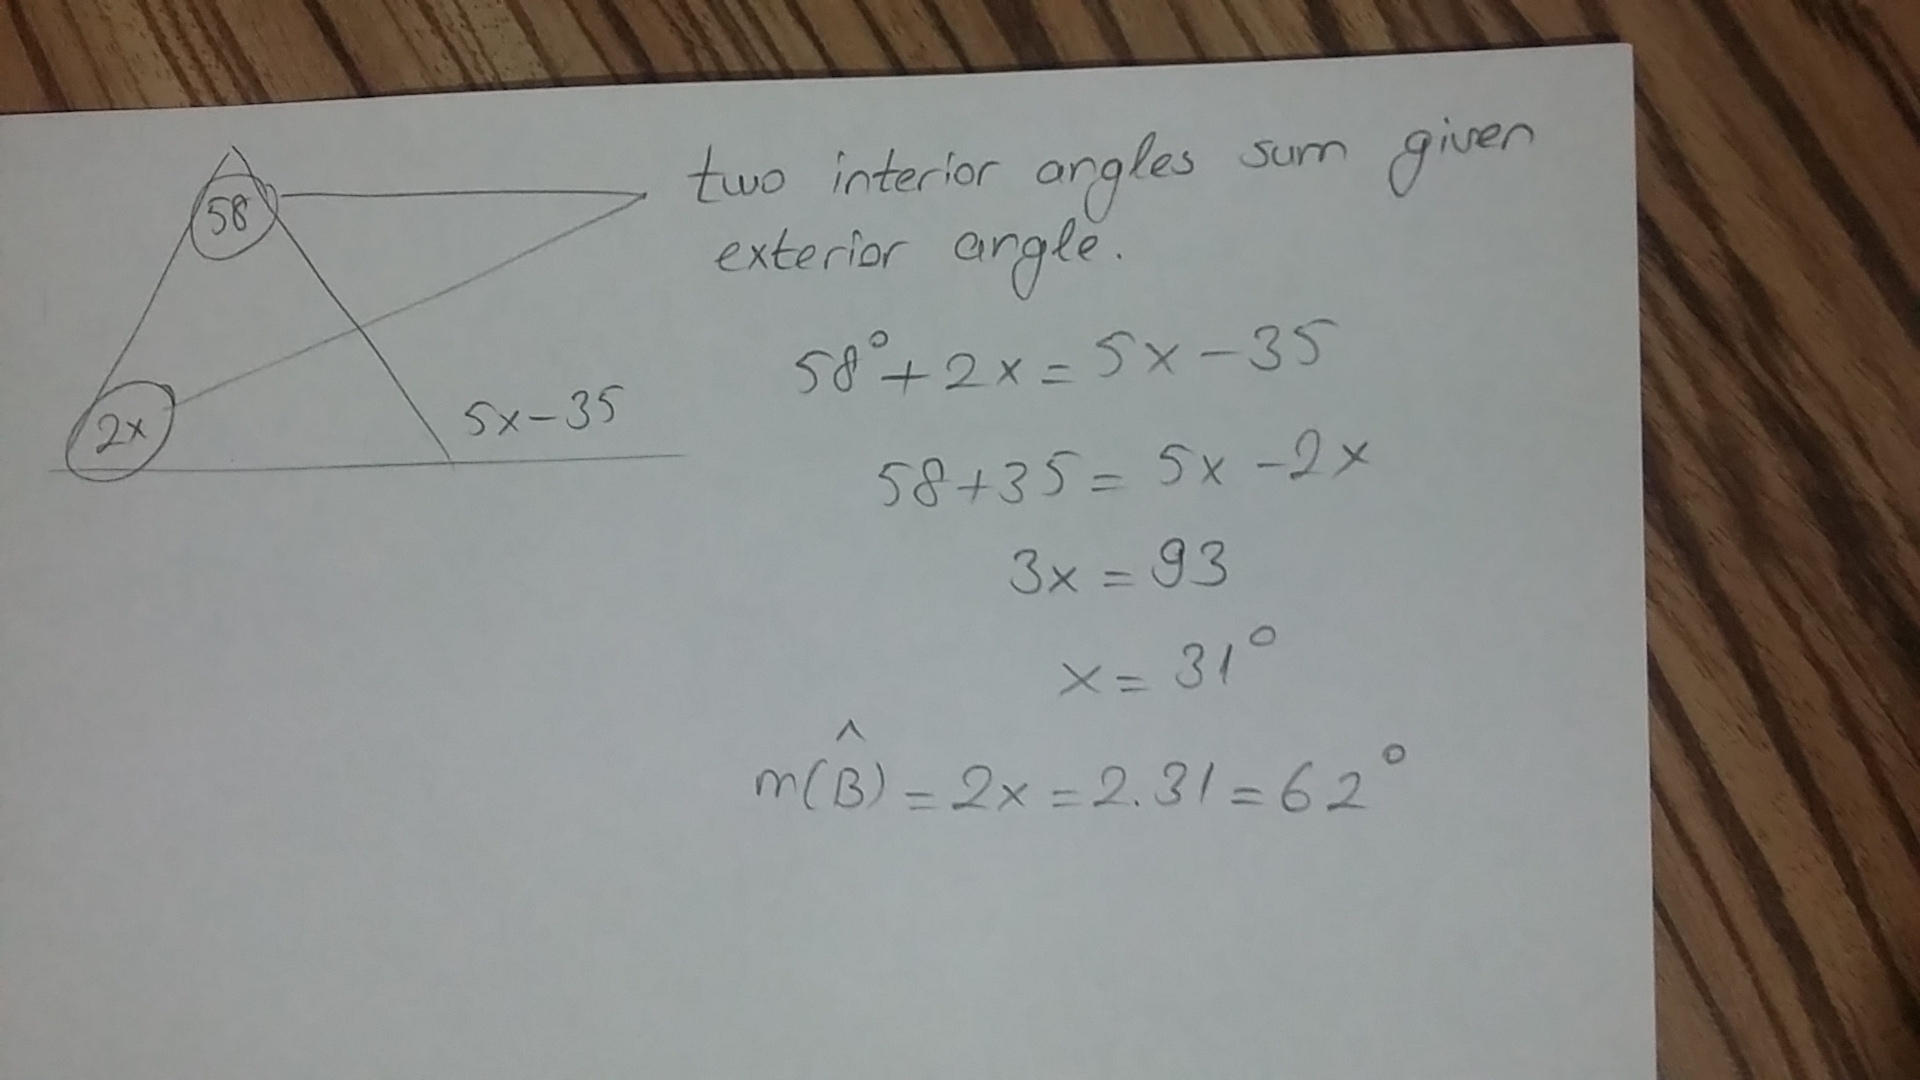 58
2x
5x-35
two interior angles sum given
exterior angle.
58°+2x=5x-35
58+35=5x-2x
3x=93
x=31°
m(B̂)=2x=2.31=62°